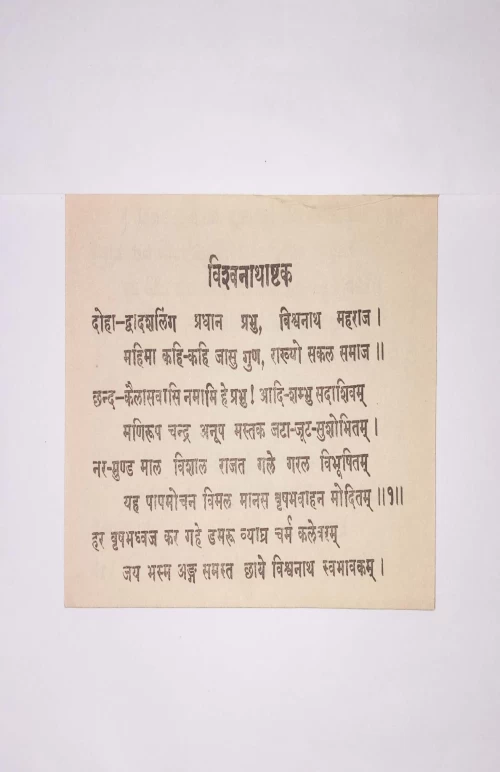 विश्वनाथाष्टक
दोहा–द्वादशलिंग प्रधान प्रभु, विश्वनाथ महराज ।
महिमा कहि-कहि जासु गुण, राख्यो सकल समाज ॥
छन्द–कैलासवासि नमामि हे प्रभु ! आदि-शम्भु सदाशिवम्
मणिरूप चन्द्र अनूप मस्तक जटा-जूट-सुशोभितम् ।
नर-मुण्ड माल विशाल राजत गले गरल विभूषितम्
यह पापमोचन विमल मानस वृषभवाहन मोदितम् ॥१॥
हर वृषभध्वज कर गहे डमरू व्याघ्र चर्म कलेवरम्
जय भस्म अङ्ग समस्त छाये विश्वनाथ स्वभावकम् ।